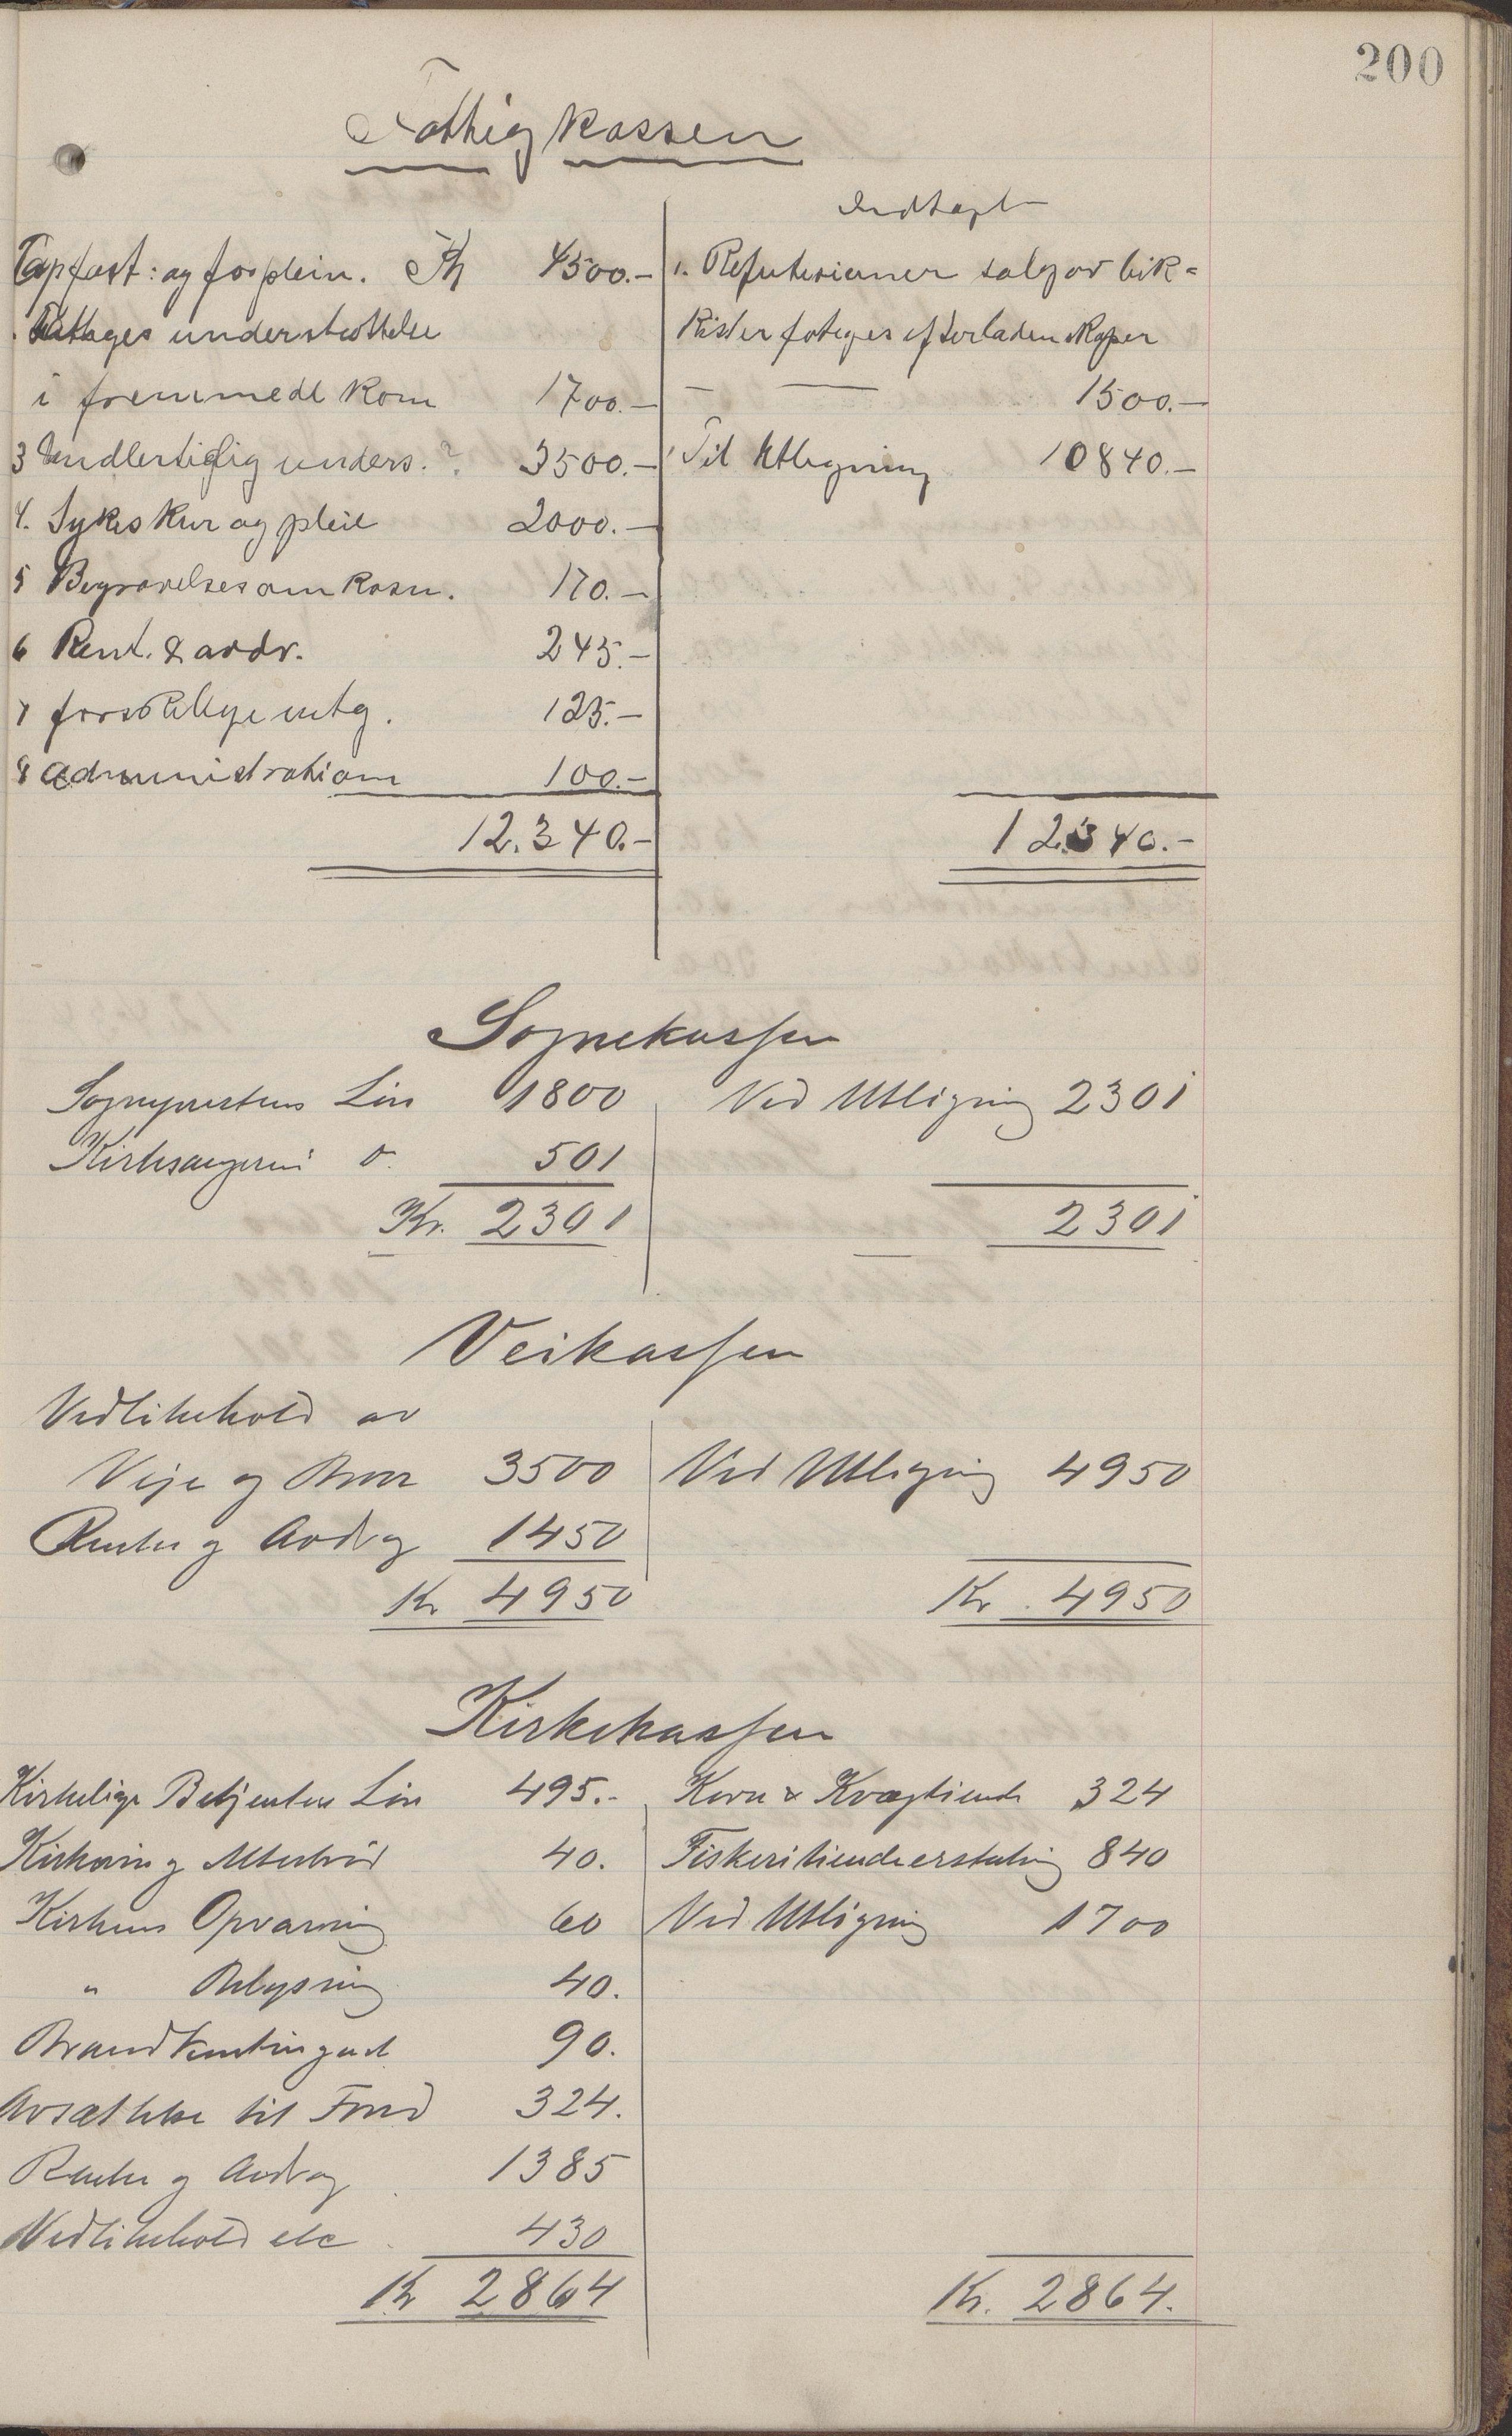 200
Fattigkassen
Indtægt
fast: og forplein. Kr 4500.- 1. Refutisioner salg av lik-
understøttelse kister fatiges efterladenskaper
i fremmede kom 1700.- - — 1500.-
3 unders. 3500.- Til Utligning 10840.-
4. Sykes kur og pleie 2000.-
5 Begravelsesomkosn. 170.-
6 Rent. & avdr. 245.-
7 125.-
8 Administration 100.-
12.340.- 12.340.-
Sognekassen
Sogneprestens Løn 1800 Ved Utligning 2301
Kirkesangerens do. 501
Kr. 2301 2301
Veikassen
Vedlikehold av
Veje og Broer 3500 Ved Utligning 4950
Renter og Avdrag 1450
Kr 4950 Kr. 4950
Kirkekassen
Kirkelige Betjenters Løn 495.- Korn & Kvægtiende 324
Kirkevin og Alterbrød 40. Fiskeritiendeerstatning 840
Kirkens Opvarmning 60 Ved Utligning 1700
" Belysning 40.
Brandkontingent 90.
Avsættelse til Fond 324.
Renter og Avdrag 1385
Vedlikehold etc 430
Kr 2864 Kr. 2864.